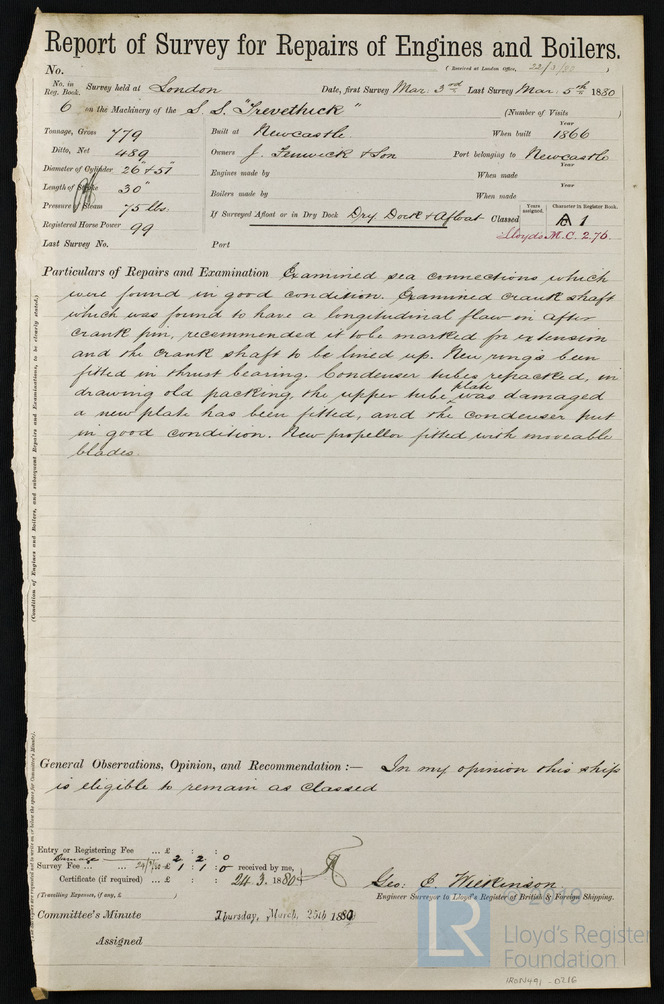 Report of Survey for Repairs of Engines and Boilers.
No. (Received at London Office, 22/3/80 )
No. in Reg. Book. Survey held at London Date, first Survey Mar: 3rd Last Survey Mar: 5th 1880
6 on the Machinery of the S. S. "Trevethick" (Number of Visits )
Tonnage, Gross 779 Built at Newcastle When built Year 1866
Ditto, Net 489 Owners J. Fenwick & Son Port belonging to Newcastle
Diameter of Cylinder 26" + 51" Engines made by When made Year
Length of Stroke 30" Boilers made by When made Year
Pressure of Steam 75 lbs.
Registered Horse Power 99 If Surveyed Afloat or in Dry Dock Dry Dock & Afloat Classed Years assigned. Character in Register Book. A 1
Lloyds M.C. 2.76.
Last Survey No. Port
Particulars of Repairs and Examination Examined sea connections which
were found in good condition. Examined crank shaft
which was found to have a longitudinal flaw in after
crank pin, recommended it to be marked for extension
and the crank shaft to be lined up. New rings been
fitted in thrust bearing. Condenser tubes repacked, in
drawing old packing, the upper tube plate was damaged
a new plate has been fitted, and the condenser put
in good condition. New propellor fitted with moveable
blades.
(Condition of Engines and Boilers, and subsequent Repairs and Examinations, to be clearly stated.)
General Observations, Opinion, and Recommendation :— In my opinion this ship
is eligible to remain as classed
Entry or Registering Fee ... £ : :
Damage 2 : 2 : 0
Survey Fee ... ... 24/3/80 £ 1 : 1 : 0 received by me,
Certificate (if required) ... £ : : 24. 3. 1880
(Travelling Expenses, if any, £ )
Geo: C. Wilkinson
Engineer Surveyor to Lloyd's Register of British & Foreign Shipping.
Committee's Minute Thursday, March, 25th 1880
Assigned
© 2019
LR
Lloyd's Register
Foundation
IRON491-0216